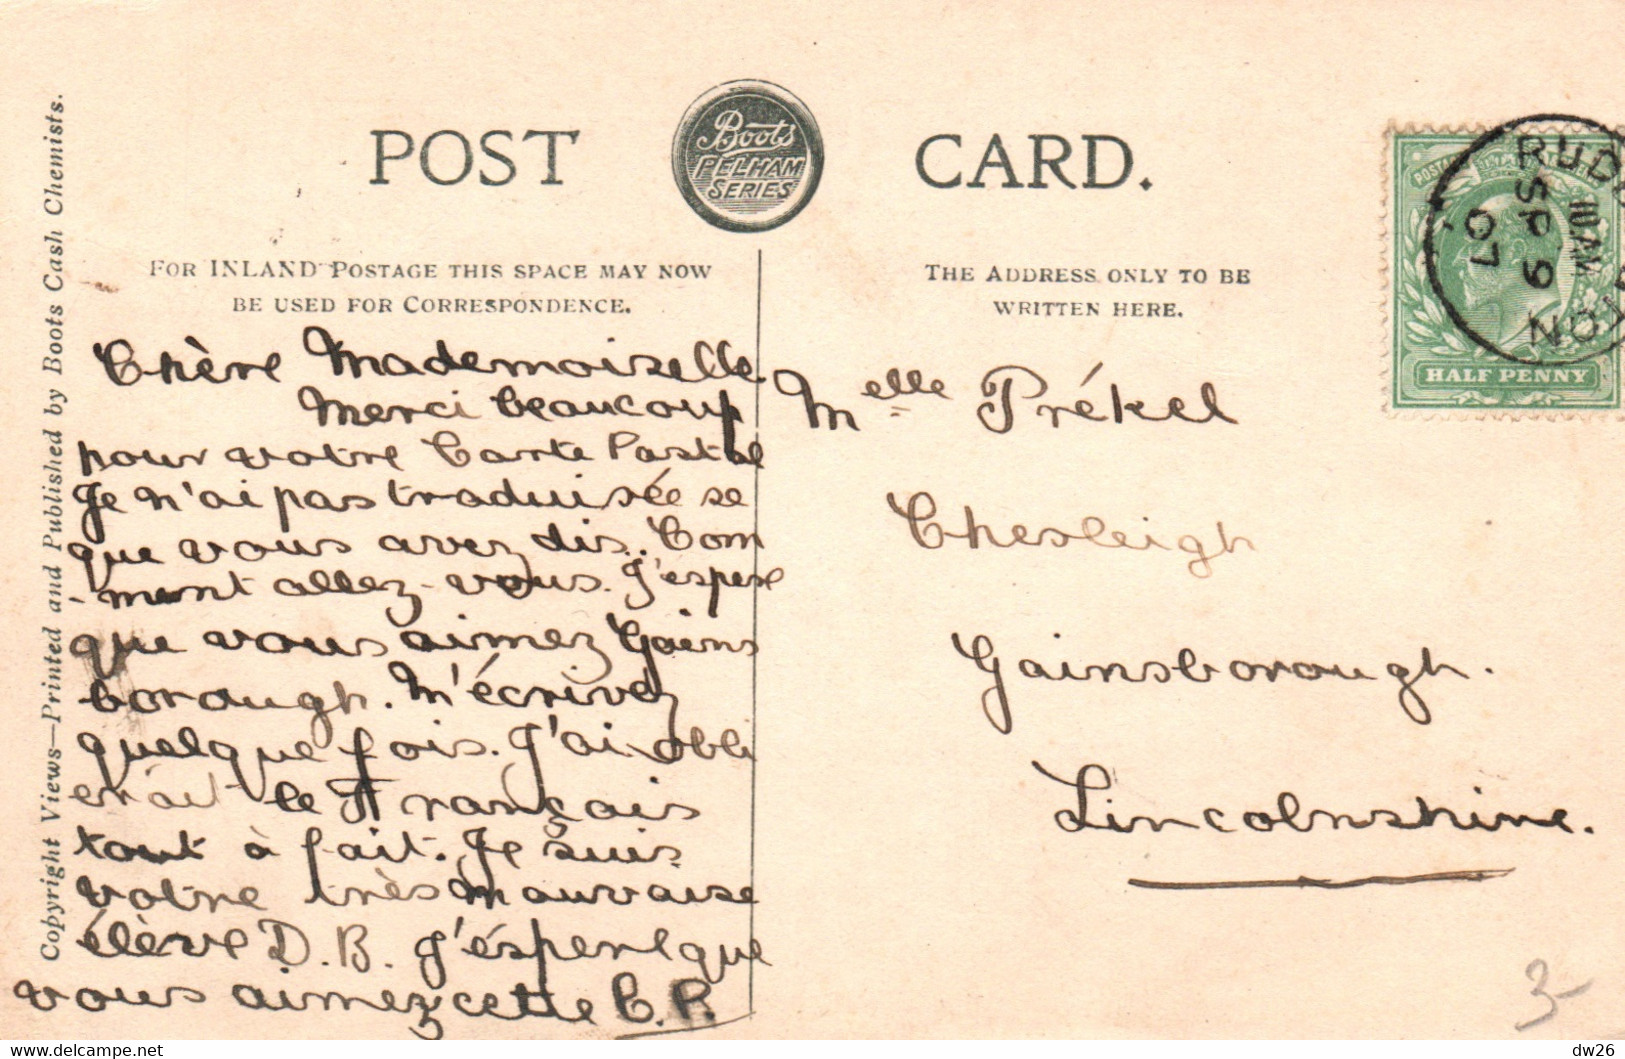 POST CARD.
Boots
PELHAM
SERIES
Copyright Views—Printed and Published by Boots Cash Chemists.
FOR INLAND POSTAGE THIS SPACE MAY NOW
BE USED FOR CORRESPONDENCE.
THE ADDRESS ONLY TO BE
WRITTEN HERE.
HALF PENNY
RUD
10 AM
SP 9
07
TON
NO
Chère Mademoiselle
Merci beaucoup
pour votre Carte Postale
Je n'ai pas traduisée se
que vous avez dis. Com
-ment allez-vous. J'espere
que vous aimez Gains
borough. M'écrivez
quelque fois. J'ai obli
erait le Français
tout à fait. Je suis
votre très mauvaise
élève D.B. J'éspere que
vous aimez cette C.P.
Melle Prékel
Chesleigh
Gainsborough.
Lincolnshire.
3-
dw26